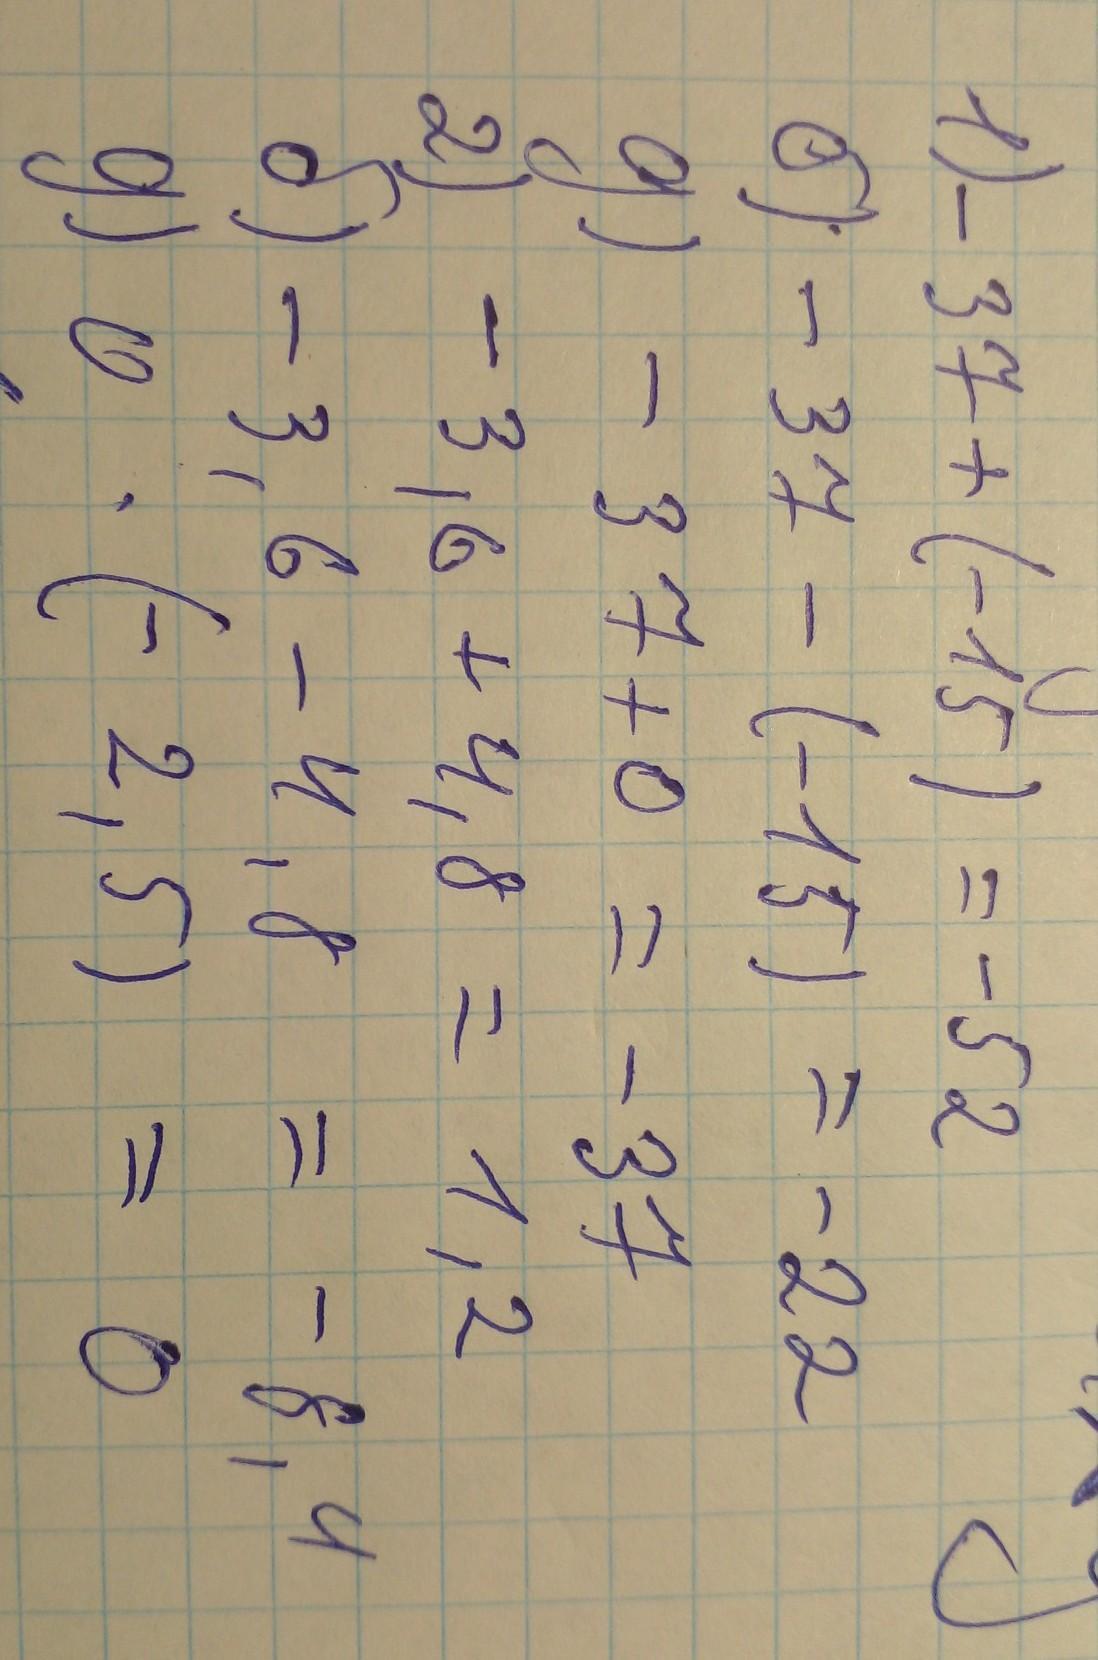 1) - 37 + (-15) = - 52
б) - 37 - (-15) = - 22
д) - 37 + 0 = - 37
2) - 3,6 + 4,8 = 1,2
б) - 3,6 - 4,8 = - 8,4
д) 0 · (- 2,5) = 0